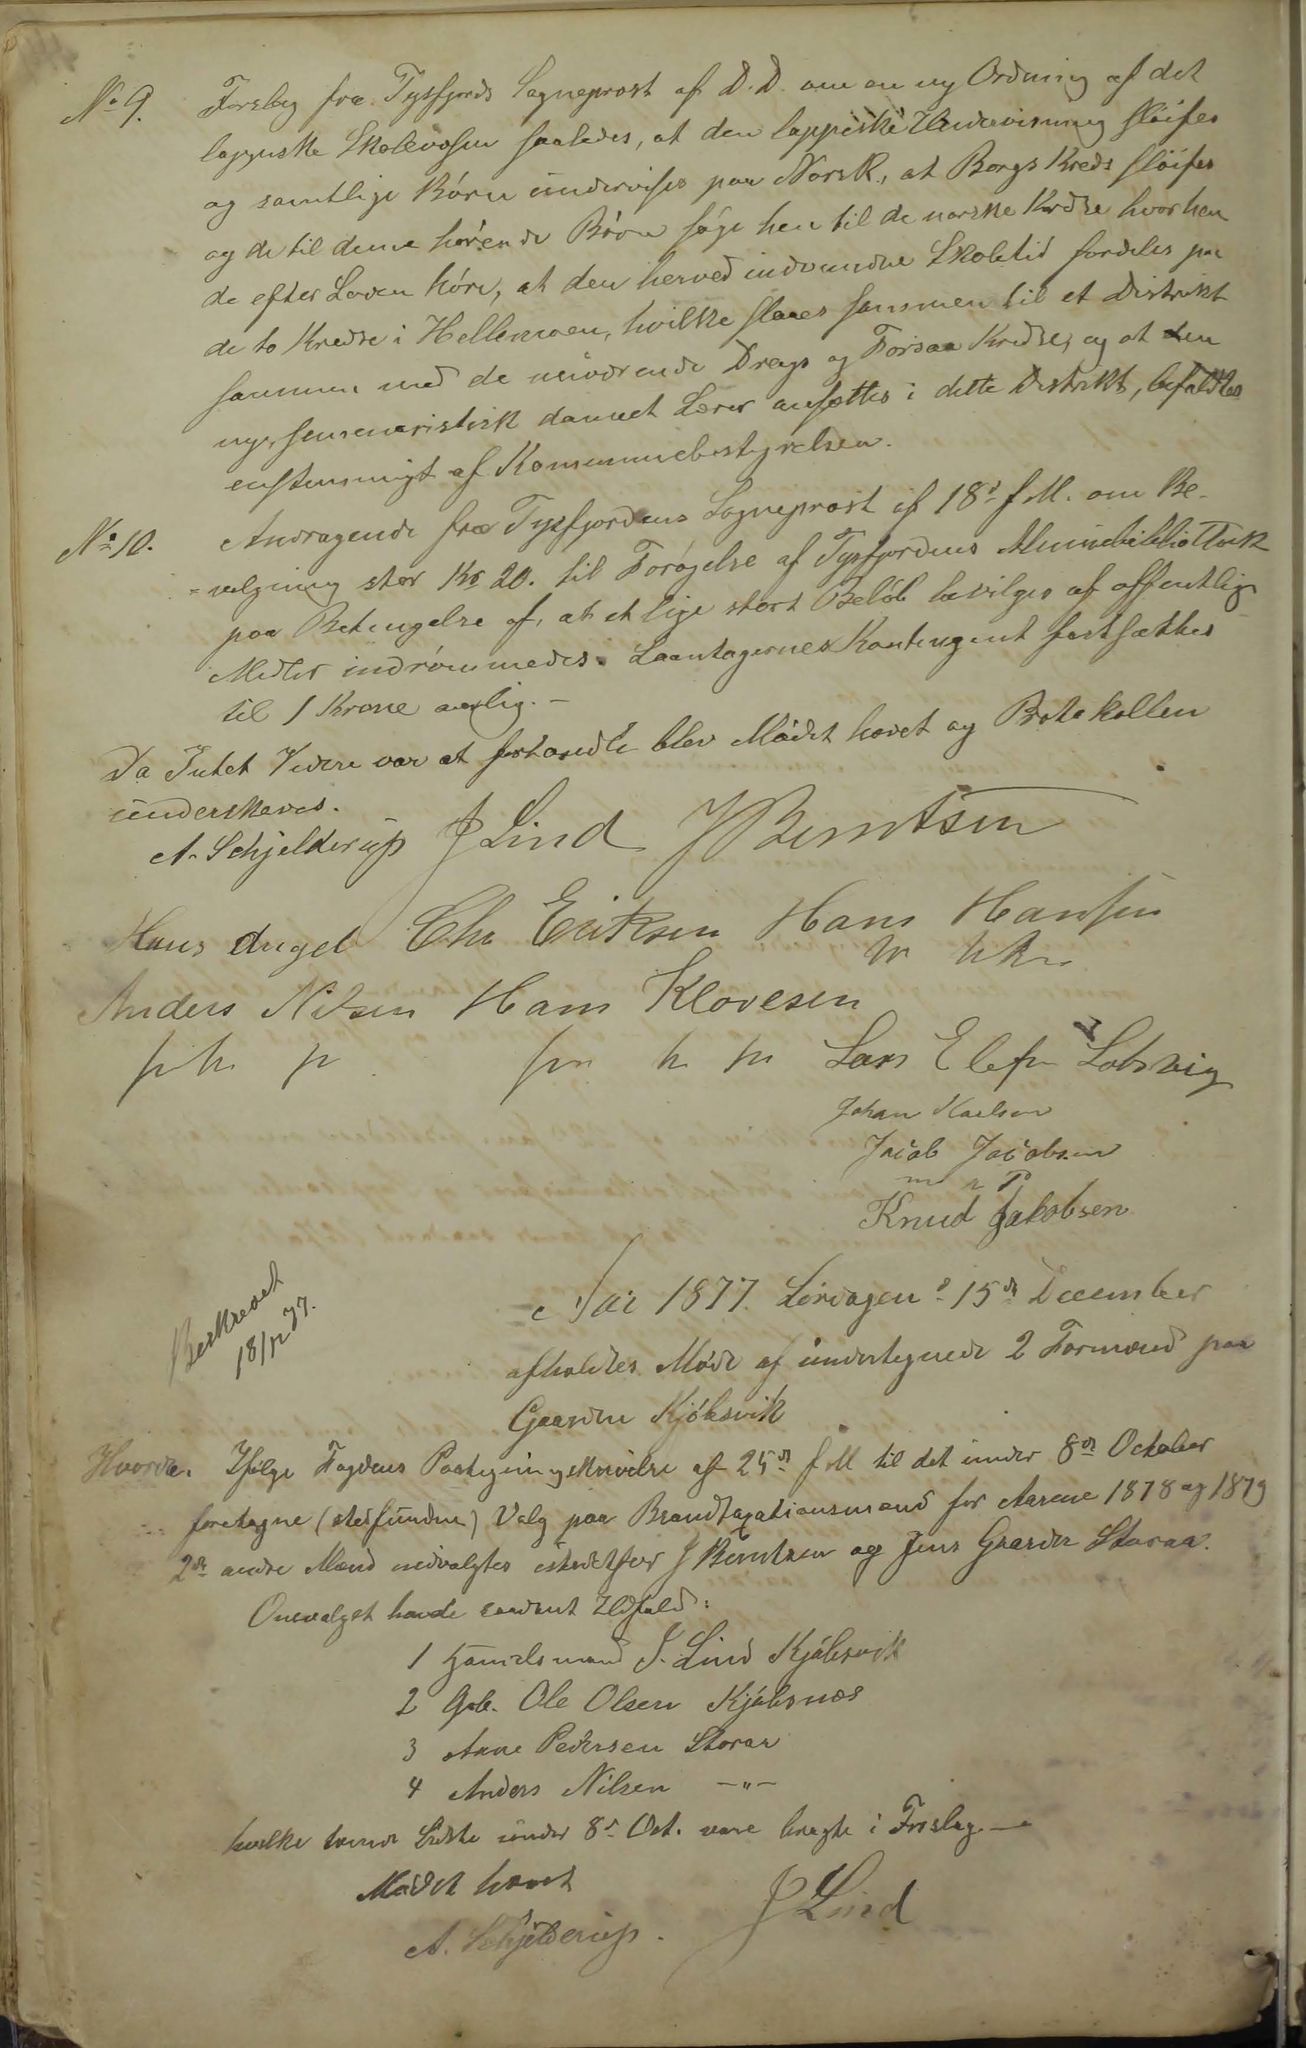 No 9. Forslag fra Tysfjords Sogneprost af D.D. om en ny Ordning af det
lappiske Skolevæsen saaledes, at den lappiske Undervisning sløifes
og samtlige Børn undervises paa Norsk, at Borgs Kreds sløifes
og de til denne hørende Børn søge hen til de norske Kredse hvorhen
de efter Loven høre, at den herved indvundne Skoletid fordeles paa
de to Kredse i Hellemoen, hvilke slaaes sammen til et Distrikt
sammen med de nuværende Drags og Forsaa Kredse, og at den
nye, seminaristisk dannet Lærer ansættes i dette Distrikt, befaldtes
enstemmigt af Kommunebestyrelsen.
No 10. Andragende fra Tysfjordens Sogneprost af 18d f.M. om Be-
-vilgning stor Kr 20. til Forøgelse af Tysfjordens Almuebibliothek
paa Betingelse af, at et lige stort Beløb bevilges af offentlige
Midler indrømmedes. Laantagernes Kontingent fastsættes
til 1 Krone aarlig. -
Da Intet Videre var at forhandle blev Mødet hævet og Protokollen
underskreves.
A. Schjelderup J Lind J Berntsen
Hans Angel Chr Eriksen Hans Hansen
Anders Nilsen Hans Klovesen
Lars Elefsen Lobvig
Johan Karlsen
Jacob Jacobsen
m P
Knud Jakobsen
Beskrevet
18/12 77.
Aar 1877 Lørdagen d. 15de December
afholdtes Møde af undertegnede 2 Formænd paa
Gaarden Kjøbsvik
Hvorda. Ifølge Fogdens Paategningskrivelse af 25de f M til det under 8de October
foretagne (stedfundne) Valg paa Brandtaxationsmænd for Aarene 1878 og 1879
2de andre Mænd udvalgtes istedetfor J Berntsen og Jens Gaarder Storaa.
Omvalget havde saadant Udfald:
1 Handelsmand J. Lind Kjøbsvik
2 Gbr. Ole Olsen Kjøbsnæs
3 Arne Pedersen Storaa
4 Anders Nilsen -"-
hvilke tvende Sidste under 8d Oct. vare bragte i Forslag. -
Mødet hævet
A. Schjelderup. J Lind